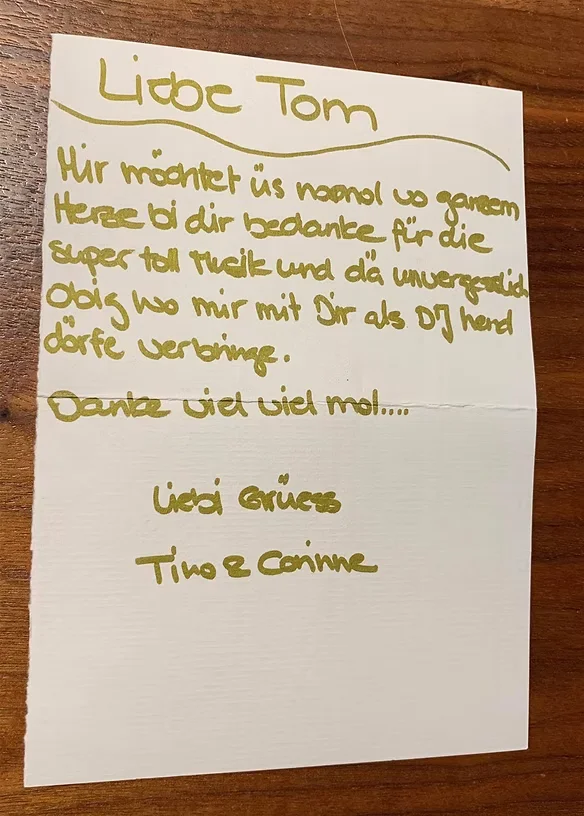 Liebe Tom
Mir möchtet üs nomol vo ganzem
Herze bi dir bedanke für die
super toll Musik und dä unvergesslich
Obig wo mir mit Dir als DJ hend
dörfe verbringe.
Danke viel viel mol....
Liebi Grüess
Tino & Corinne